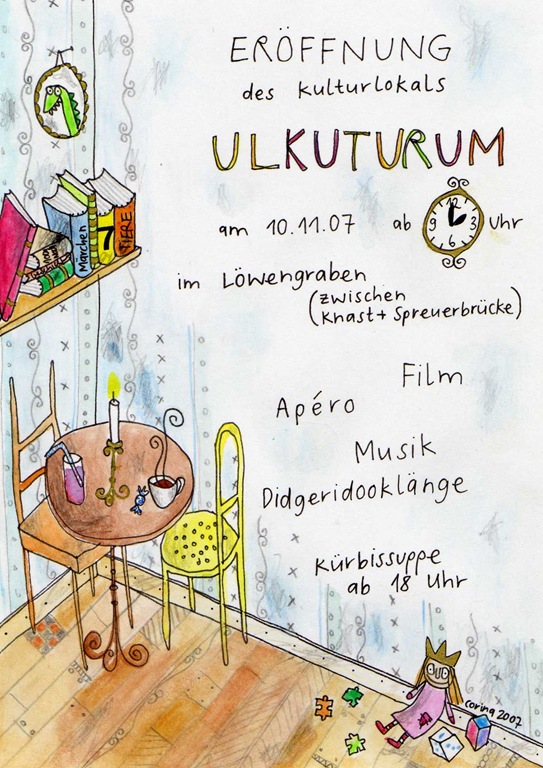 ERÖFFNUNG
des Kulturlokals
ULKUTURUM
am 10.11.07 ab
12
9 3
6
Uhr
im Löwengraben
(zwischen
Knast + Spreuerbrücke)
Film
Apéro
Musik
Didgeridooklänge
Kürbissuppe
ab 18 Uhr
Märchen
7
TIERE